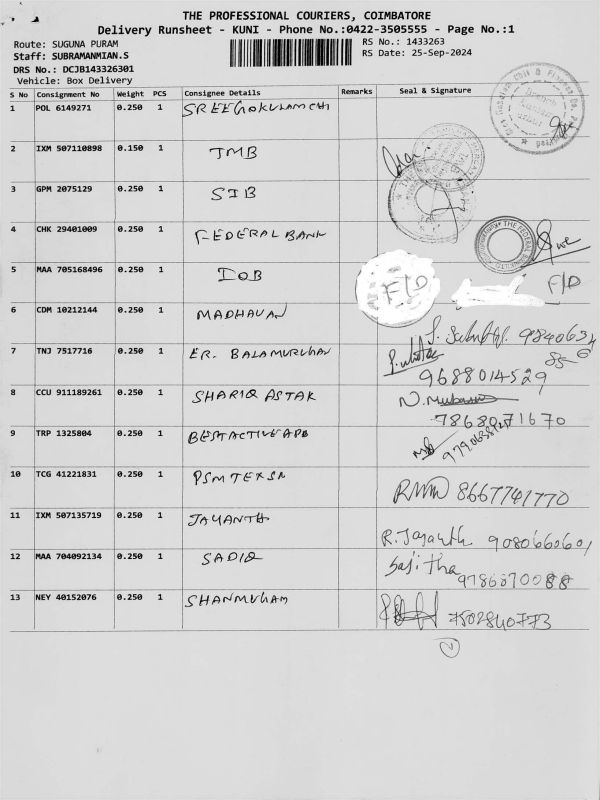 THE PROFESSIONAL COURIERS, COIMBATORE
Delivery Runsheet - KUNI - Phone No.:0422-3505555 - Page No.:1
Route: SUGUNA PURAM
RS No.: 1433263
Staff: SUBRAMANMIAN.S
RS Date: 25-Sep-2024
DRS No.: DCJB143326301
Vehicle: Box Delivery
S No Consignment No Weight PCS Consignee Details Remarks Seal & Signature
1 POL 6149271 0.250 1 SREEGOKULAM CHI
2 IXM 507110898 0.150 1 TMB
3 GPM 2075129 0.250 1 SIB
4 CHK 29401009 0.250 1 FEDERAL BANK
5 MAA 705168496 0.250 1 IOB F/D F/D
6 CDM 10212144 0.250 1 MADHAVAN
7 TNJ 7517716 0.250 1 ER. BALAMURUGAN 9688014529
8 CCU 911189261 0.250 1 SHARIQ ASTAK 7868071670
9 TRP 1325804 0.250 1 BESTACTIVE APP
10 TCG 41221831 0.250 1 PSM TEX SM 8667741770
11 IXM 507135719 0.250 1 JAYANTH R. Jayanth 9080660601
12 MAA 704092134 0.250 1 SADIQ Sajitha 9786870088
13 NEY 40152076 0.250 1 SHANMUGAM 7502840773